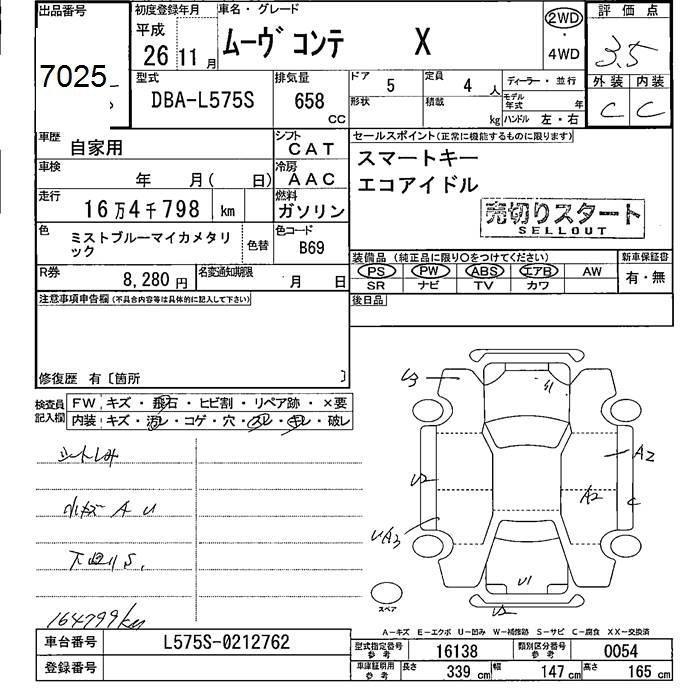 出品番号 初度登録年月 車名・グレード 2WD 評価点
7025 平成 26 11月 ムーヴコンテ X ・ 4WD 3.5
型式 排気量 ドア 5 定員 4人 ディーラー・並行 外装 内装
DBA-L575S 658 CC 形状 積載 kg モデル年式 年 ハンドル 左・右 C C
車歴 自家用 シフト CAT セールスポイント(正常に機能するものに限ります)
車検 年 月( 日) 冷房 AAC スマートキー
走行 16万4千798 km 燃料 ガソリン エコアイドル
売切りスタート
SELLOUT
色 ミストブルーマイカメタリック 色替 色コード B69
装備品 (純正品に限り○をつけてください) 新車保証書
R券 8,280円 名変通知期限 月 日 PS PW ABS エアB AW 有・無
SR ナビ TV カワ
注意事項申告欄(不具合内容等は具体的に記入して下さい) 後日品
修復歴 有〔箇所 〕
検査員記入欄 FW キズ・飛石・ヒビ割・リペア跡・×要
内装 キズ・汚レ・コゲ・穴・スレ・キレ・破レ
シートしみ
小キズ A U
下回りS.
164799km
U3 A2 U2 A2 C UA3 U1 U2
スペア
A-キズ E-エクボ U-凹み W-補修跡 S-サビ C-腐食 XX-交換済
車台番号 L575S-0212762 型式指定番号 参考 16138 類別区分番号 参考 0054
登録番号 車庫証明用 参考 長さ 339 cm 幅 147 cm 高さ 165 cm